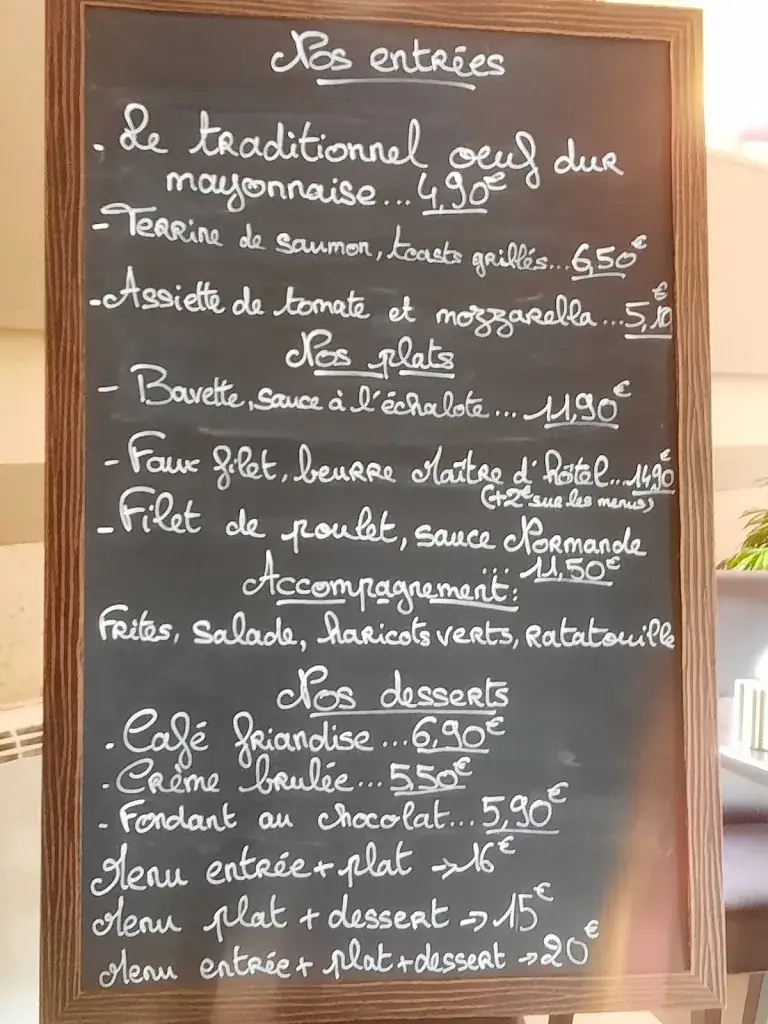 Nos entrées
- Le traditionnel oeuf dur
mayonnaise... 4,90€
- Terrine de saumon, toasts grillés... 6,50€
- Assiette de tomate et mozzarella... 5,10€
Nos plats
- Bavette, sauce à l'échalote... 11,90€
- Faux filet, beurre Maître d'hôtel... 14,90€
(+2€ sur les menus)
- Filet de poulet, sauce Normande
... 11,50€
Accompagnement:
Frites, salade, haricots verts, Ratatouille
Nos desserts
- Café friandise... 6,90€
- Crème brulée... 5,50€
- Fondant au chocolat... 5,90€
Menu entrée + plat → 16€
Menu plat + dessert → 15€
Menu entrée + plat + dessert → 20€